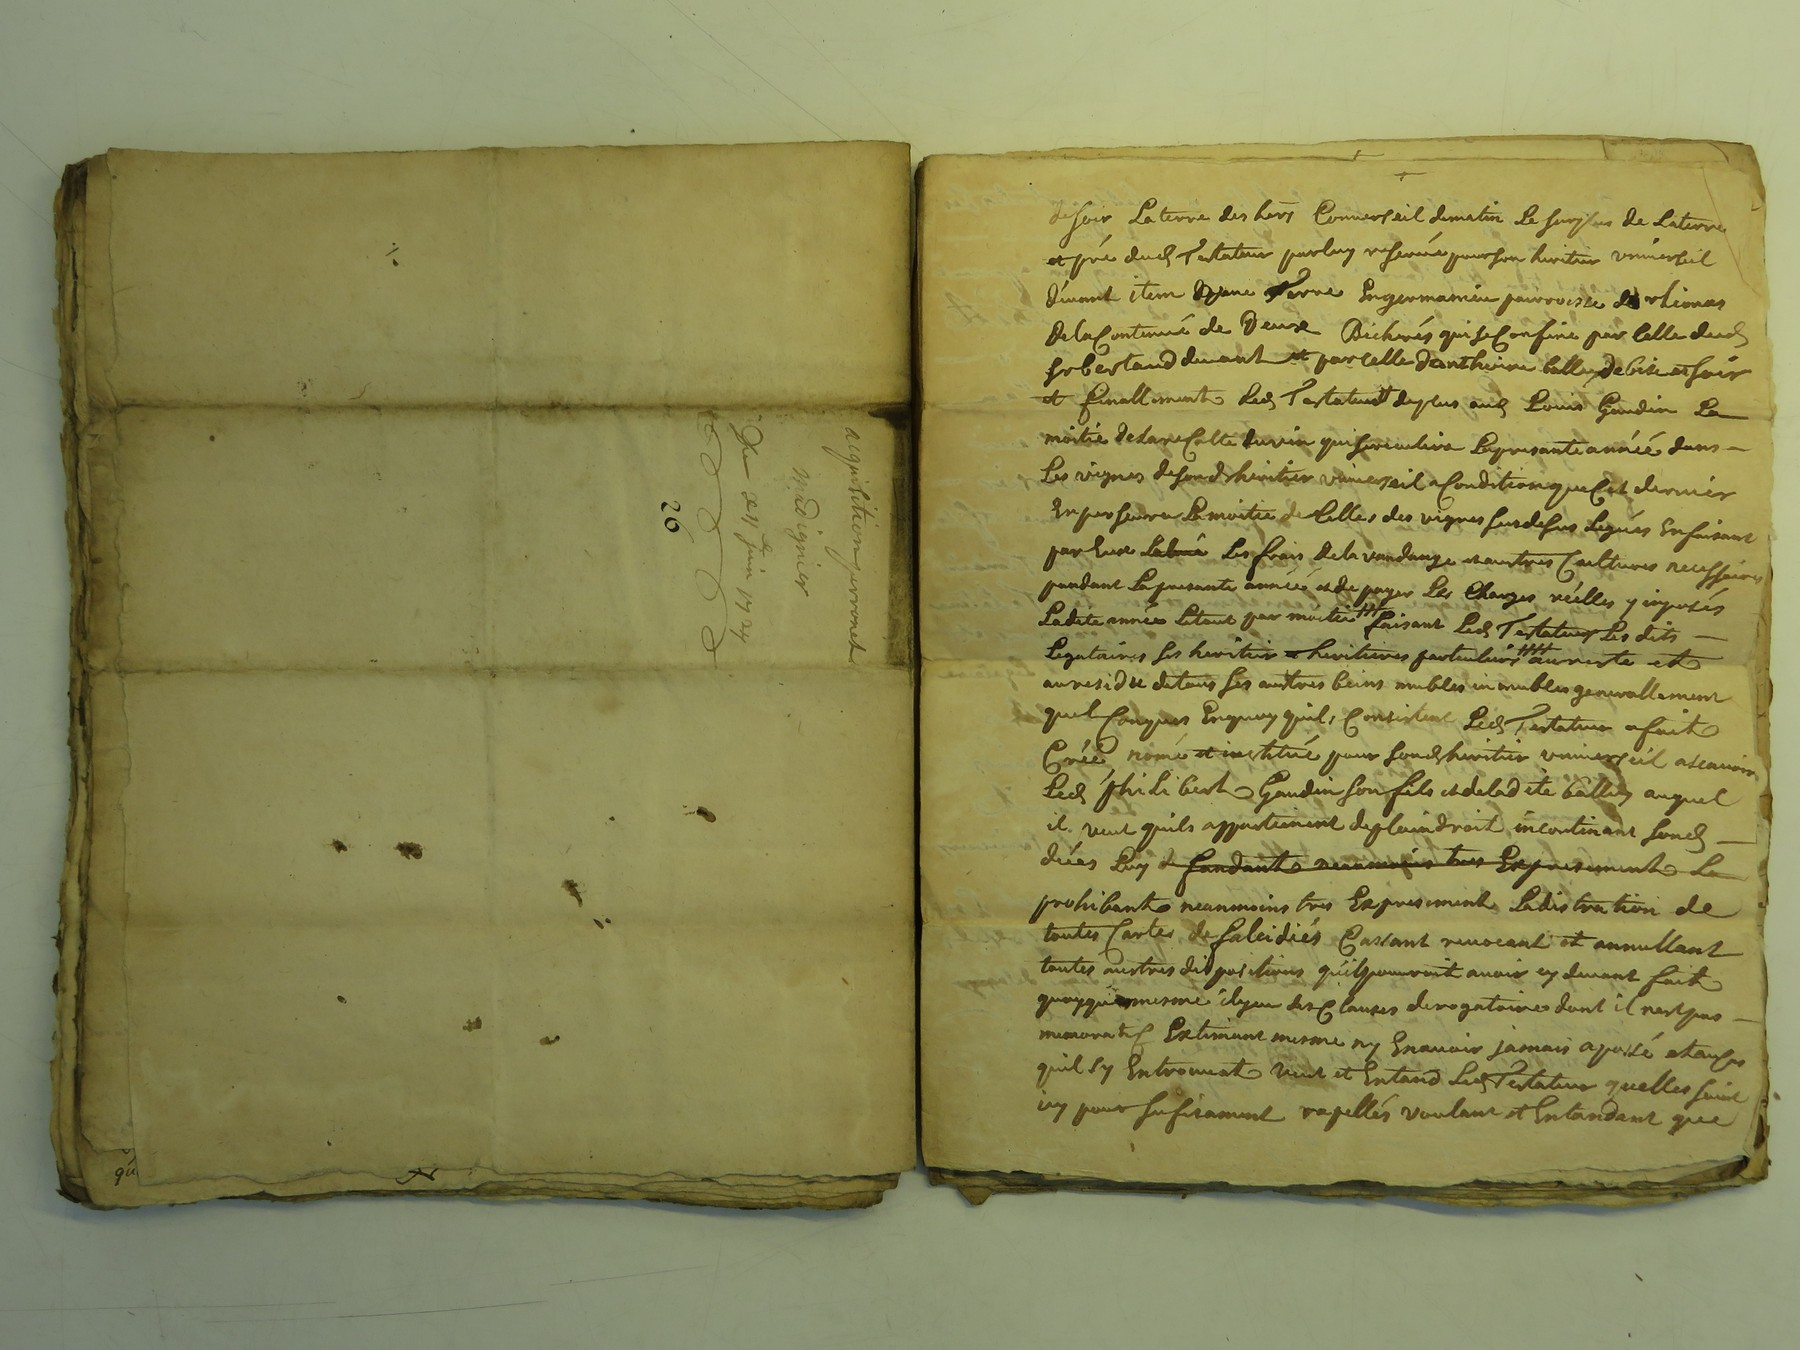 acquisition perronet
m. dignier
Du 24 juin 1724
26
qu
de soir La terre des hers Converseil de matin Le surplus de La terre
et pré dud Testateur par luy reservée pour son heritier universeil
devant item Dune Terre En germanieu parroisse de
De la Contenue de Deux Bicherés qui se Confine par Celle dud
Sr bertaud devant et par Celle danthoine ballay de bise et soir
et finallement Led Testateur deplus aud Louis Gaudin La
moitié de la recolte du vin qui se La presante année dans
Les vignes de sond heritier universeil a Condition que Cet dernier
En persevra La moitié de Celles des vignes susdesus Leguées En faisant
par Eux Les frais de la vandange et autres Cultures necessaires
pandant La presante année et de payer Les Charges réélles y inposés
Ladite année Letout par moitié faisant Led Testateur Les dits
Legataires ses heritier heritieres particuliers au reste et
au residu de tous ses autres beins mubles inmubles generallement
quel Conques En quoy quils Consistent Led Testateur a fait
Créé nomé et institué pour sond heritier universeil ascavoir
Led philibert Gaudin son fils et de ladite ballay auquel
il veut quils appartienent de plain droit incontinant sond
décés Luy de fandant neanmoins tres Expresement La
prohibant neanmoins tres Expresement La distration de
toutes Cartes de falcidiés Cassant revocant et annullant
toutes autres dispositions quil pourroit avoir cy devant fait
quoyque mesme il y eu des Clauses derogatoires dont il nest pas
memoratif Extimant mesme ny En avoir jamais aposé et au cas
quil sy Entrouvat veut et Entand Led Testateur quelles soint
icy pour sufisament rapellés voulant et Entandant que